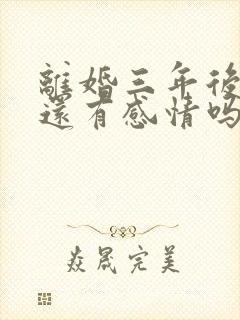 離婚三年後
還有感情嗎
焱晟完美